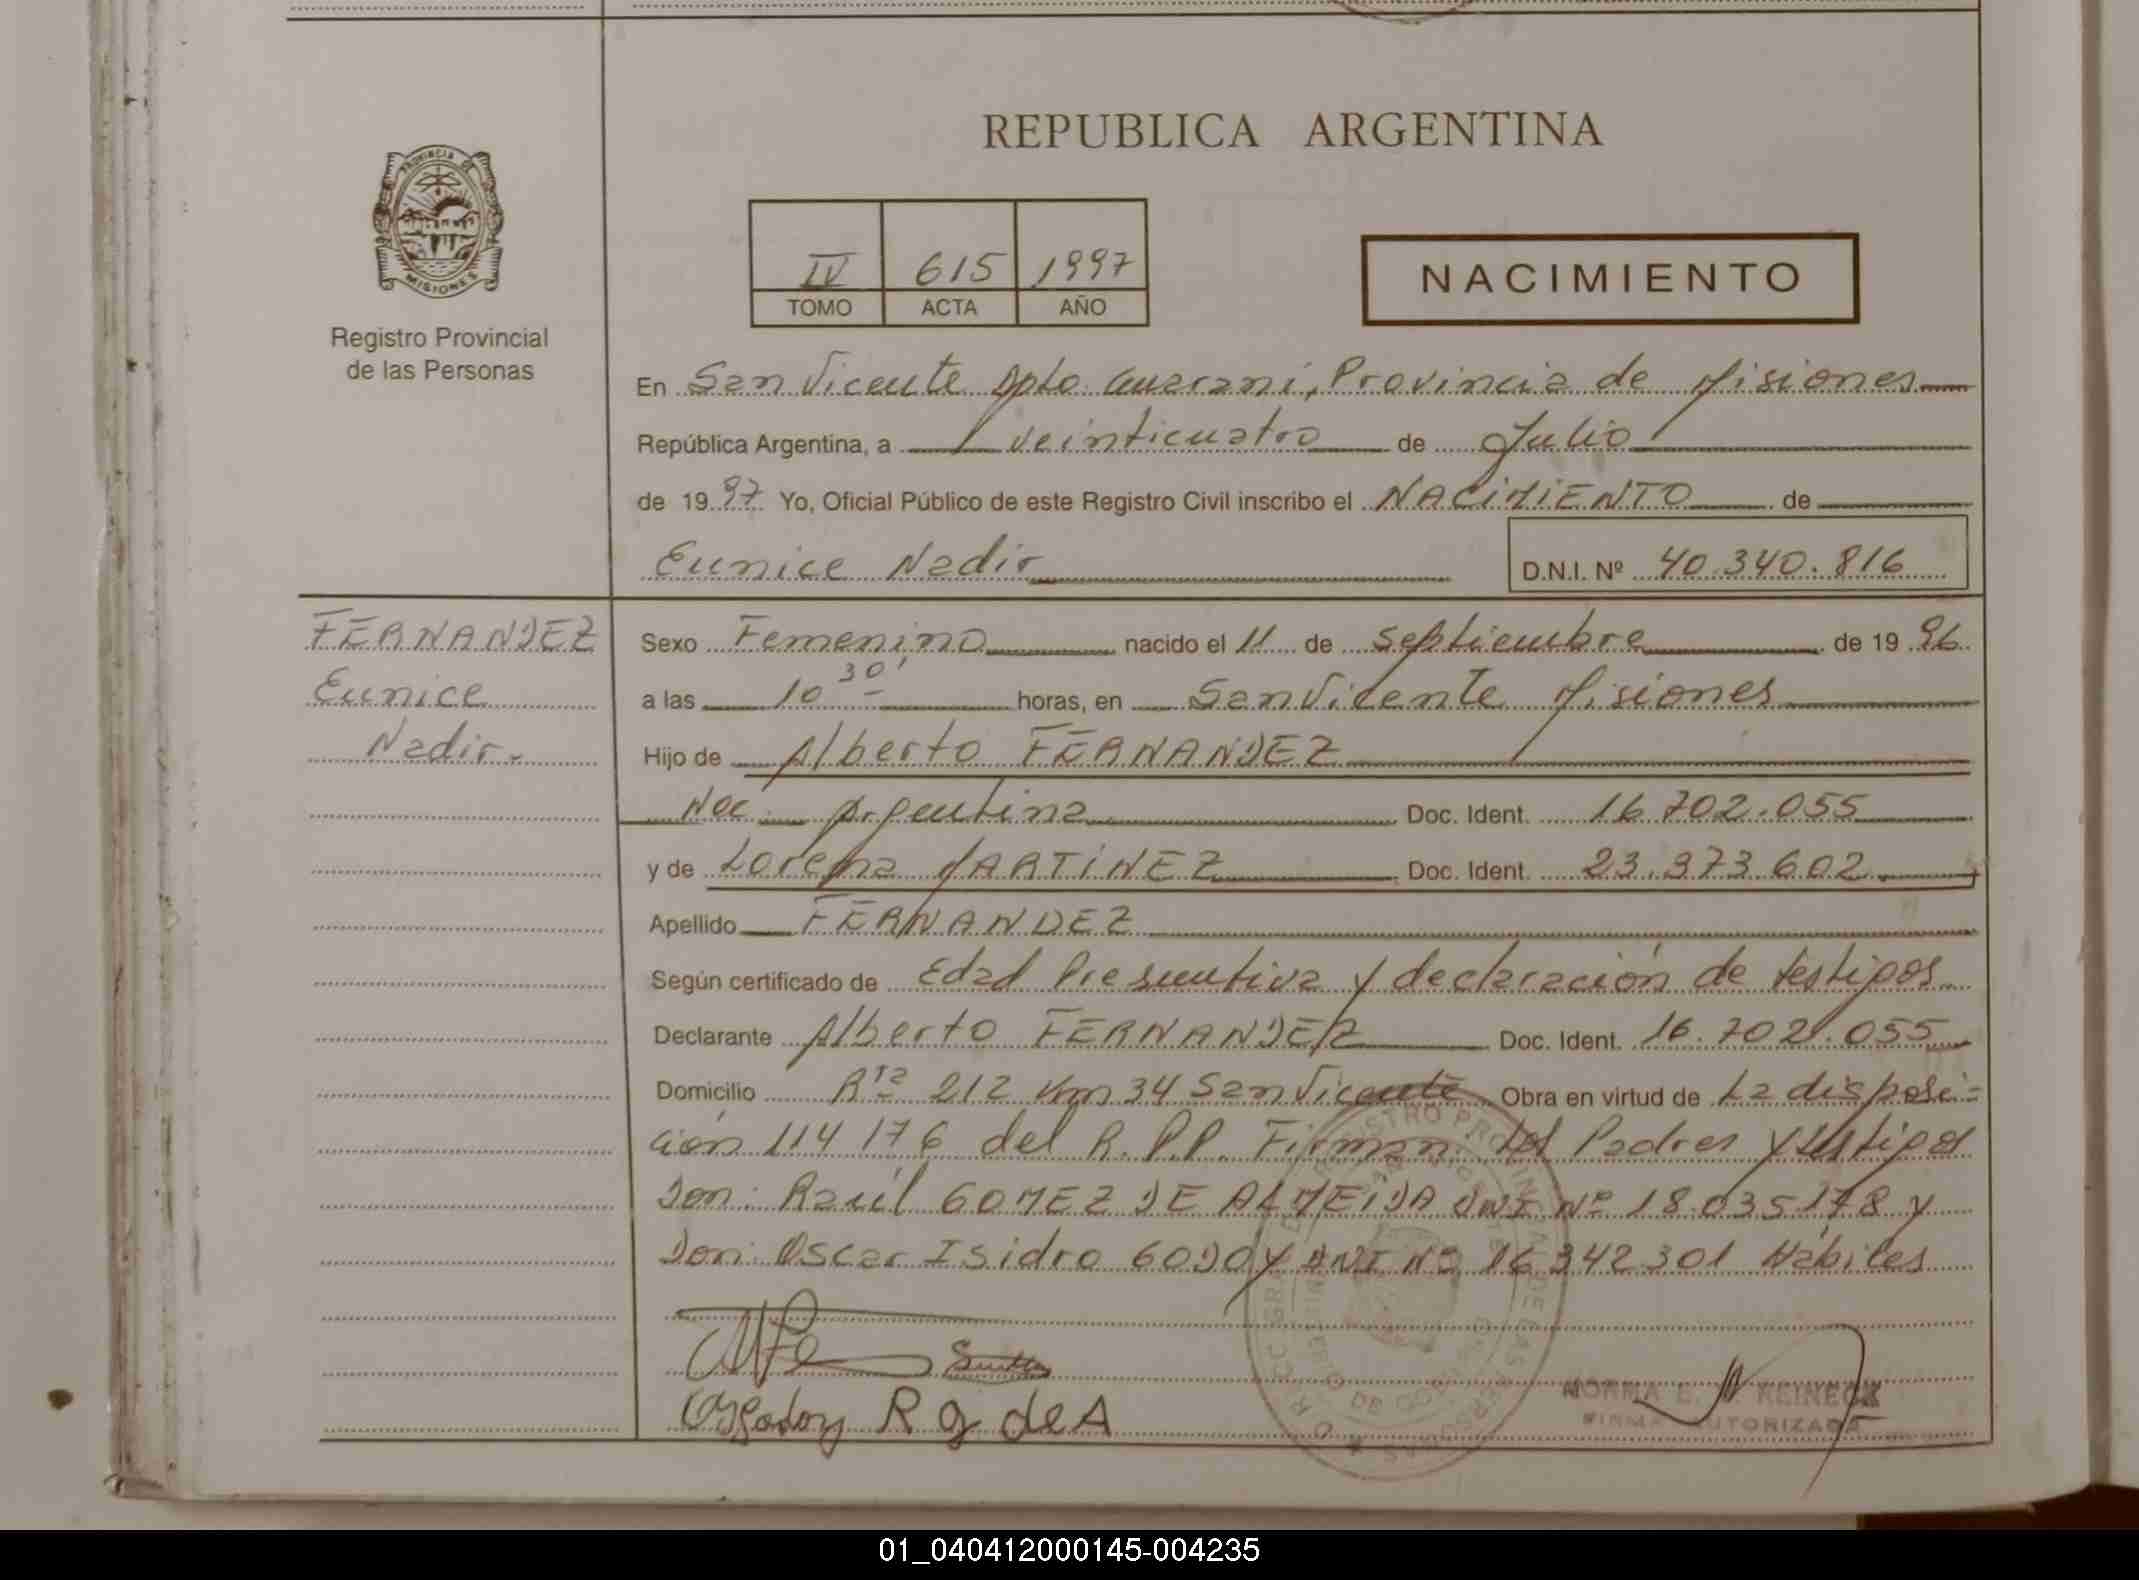 REPUBLICA ARGENTINA
PROVINCIA DE
MISIONES
Registro Provincial
de las Personas
IV 615 1997
TOMO ACTA AÑO
NACIMIENTO
En San Vicente Dpto. Guarani, Provincia de Misiones
República Argentina, a veinticuatro de Julio
de 1997 Yo, Oficial Público de este Registro Civil inscribo el NACIMIENTO de
Eunice Nadir
D.N.I. Nº 40.340.816
FERNANDEZ
Eunice
Nadir.-
Sexo Femenino nacido el 11 de Septiembre de 1996
a las 10 30' horas, en San Vicente Misiones
Hijo de Alberto FERNANDEZ
Nac Argentina Doc. Ident. 16.702.055
y de Lorena MARTINEZ Doc. Ident. 23.373.602.
Apellido FERNANDEZ
Según certificado de Edad Presuntiva y declaración de testigos
Declarante Alberto FERNANDEZ Doc. Ident. 16.702.055
Domicilio Rta 212 Km 34 San Vicente Obra en virtud de La disposi=
ción 114 176 del R.P.P. Firman Los Padres y testigos
Don: Raúl GOMEZ DE ALMEIDA DNI Nº 18.035.178 y
Don: Oscar Isidro GODOY DNI Nº 16.342.301 Hábiles
OGodoy R g de A
NORMA E. REINECK
FIRMA AUTORIZADA
01_040412000145-004235